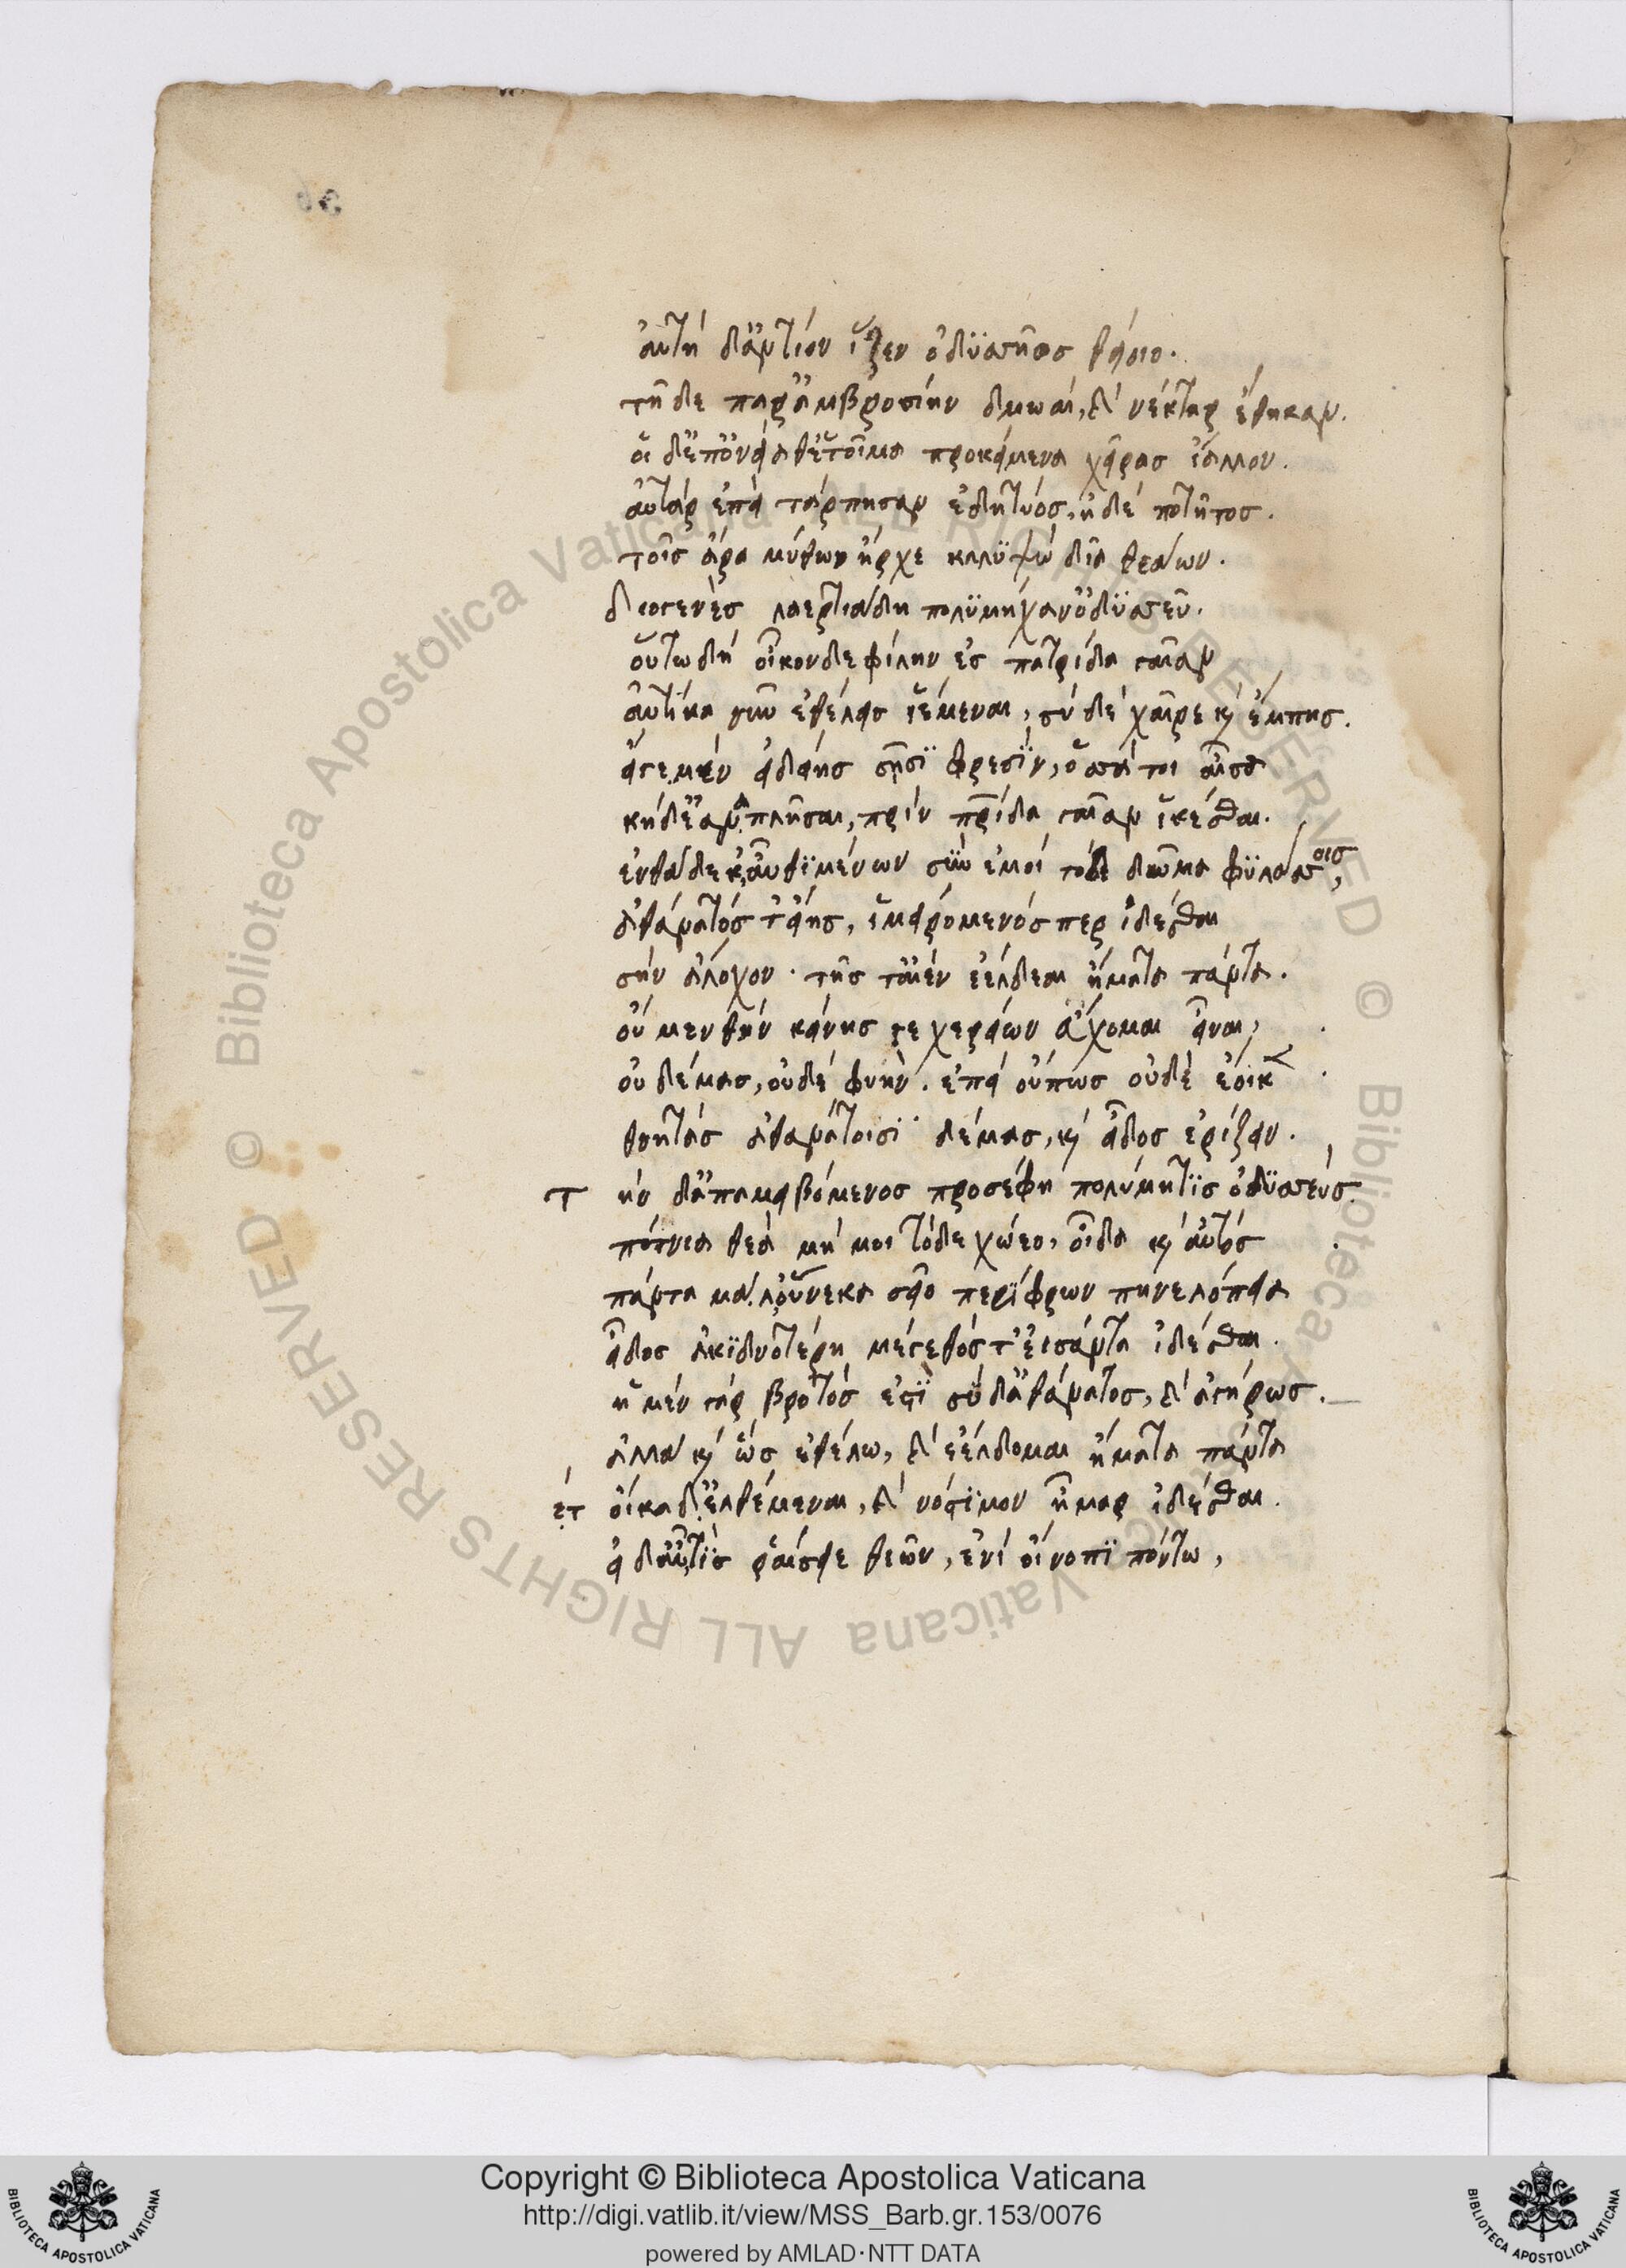 αὐτὴ δ' ἀντίον ἷζεν ὀδυσσῆος θείοιο.
τῆ δὲ παρ' ἀμβροσίην δμωαὶ, καὶ νέκταρ ἔθηκαν.
οἱ δ' ἐπ' ὀνείαθ' ἑτοῖμα προκείμενα χεῖρας ἴαλλον.
αὐτὰρ ἐπεὶ τάρπησαν ἐδητύος, ἠδὲ ποτῆτος.
τοῖς ἄρα μύθων ἦρχε καλυψὼ δῖα θεάων.
διογενὲς λαερτιάδη πολυμήχαν' ὀδυσσεῦ.
οὕτω δὴ οἶκον δὲ φίλην ἐς πατρίδα γαῖαν
αὐτίκα νῦν ἐθέλεις ἰέμεναι, σὺ δὲ χαῖρε καὶ ἔμπης.
εἴγε μὲν εἰδείης σῆσι φρεσὶν, ὅσσα τοι αἶσα
κήδε' ἀναπλῆσαι, πρὶν πρίδα γαῖαν ἱκέσθαι.
ἐνθάδε κ' αὖθι μένων σὺν ἐμοὶ τόδε δῶμα φυλάσσοις,
ἀθάνατός τ' εἴης, ἱμειρόμενός περ ἰδέσθαι
σὴν ἄλοχον. τῆς τ' αἰὲν ἐέλδεαι ἤματα πάντα.
οὐ μὲν θὴν κείνης γε χερείων εὔχομαι εἶναι,
οὐ δέμας, οὐδὲ φυήν. ἐπεὶ οὔπως οὐδὲ ἔοικε
θνητὰς ἀθανάτοισι δέμας, καὶ εἶδος ἐρίζειν.
τ ὴν δ' ἀπαμειβόμενος προσέφη πολύμητις ὀδυσσεύς.
πότνια θεὰ μή μοι τόδε χώεο, οἶδα καὶ αὐτὸς
πάντα μάλ' οὕνεκα σεῖο περίφρων πηνελόπεια
εἶδος ἀκιδνοτέρη μέγεθός τ' εἰσάντα ἰδέσθαι.
ἡ μὲν γὰρ βροτός ἐστι σὺ δ' ἀθάνατος, καὶ ἀγήρως.
ἀλλὰ καὶ ὧς ἐθέλω, καὶ ἐέλδομαι ἤματα πάντα
οἴκαδ' ἐλθέμεναι, καὶ νόστιμον ἦμαρ ἰδέσθαι.
εἰ δ' αὖτις ῥαίσῃε θεῶν, ἐνὶ οἴνοπι πόντω,
Copyright © Biblioteca Apostolica Vaticana
http://digi.vatlib.it/view/MSS_Barb.gr.153/0076
powered by AMLAD·NTT DATA